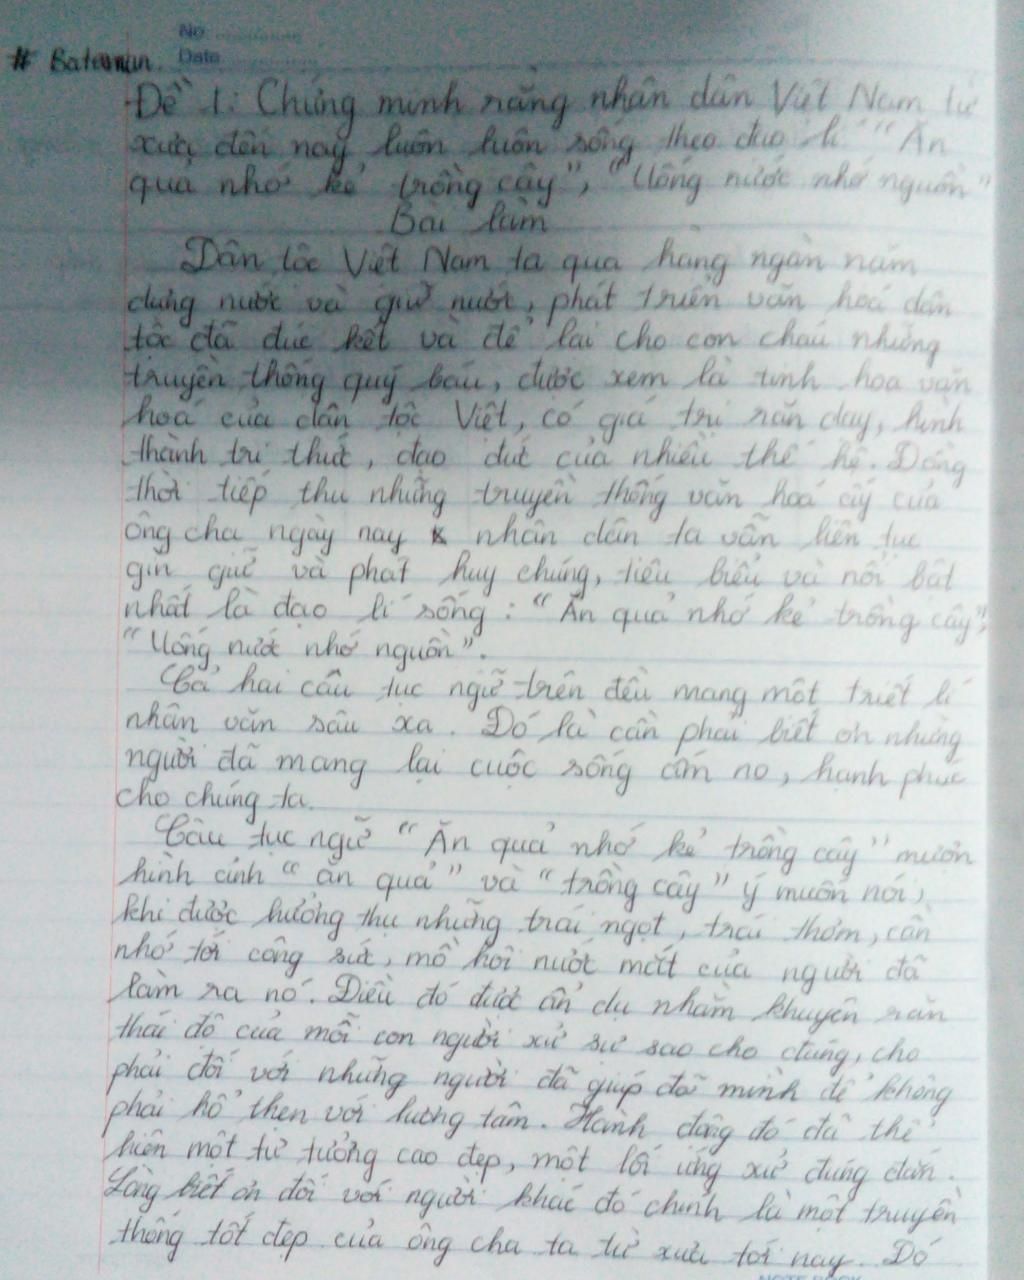 No
Date
# Bateman.
Đề 1: Chứng minh rằng nhân dân Việt Nam từ
xưa đến nay luôn luôn sống theo đạo lí "Ăn
quả nhớ kẻ trồng cây", "Uống nước nhớ nguồn"
Bài làm
Dân tộc Việt Nam ta qua hàng ngàn năm
dựng nước và giữ nước, phát triển văn hoá dân
tộc đã đúc kết và để lại cho con cháu những
truyền thống quý báu, được xem là tinh hoa văn
hoá của dân tộc Việt, có giá trị răn dạy, hình
thành tri thức, đạo đức của nhiều thế hệ. Đồng
thời tiếp thu những truyền thống văn hoá ấy của
ông cha ngày nay nhân dân ta vẫn liên tục
gìn giữ và phát huy chúng, tiêu biểu và nổi bật
nhất là đạo lí sống: "Ăn quả nhớ kẻ trồng cây",
"Uống nước nhớ nguồn".
Cả hai câu tục ngữ trên đều mang một triết lí
nhân văn sâu xa. Đó là cần phải biết ơn những
người đã mang lại cuộc sống ấm no, hạnh phúc
cho chúng ta.
Câu tục ngữ "Ăn quả nhớ kẻ trồng cây" mượn
hình ảnh "ăn quả" và "trồng cây" ý muốn nói,
khi được hưởng thụ những trái ngọt, trái thơm, cần
nhớ tới công sức, mồ hôi nước mắt của người đã
làm ra nó. Điều đó được ẩn dụ nhằm khuyên răn
thái độ của mỗi con người xử sự sao cho đúng, cho
phải đối với những người đã giúp đỡ mình để không
phải hổ thẹn với lương tâm. Hành động đó đã thể
hiện một tư tưởng cao đẹp, một lối ứng xử đúng đắn.
Lòng biết ơn đối với người khác đó chính là một truyền
thống tốt đẹp của ông cha ta từ xưa tới nay. Đó
NOTE BOOK